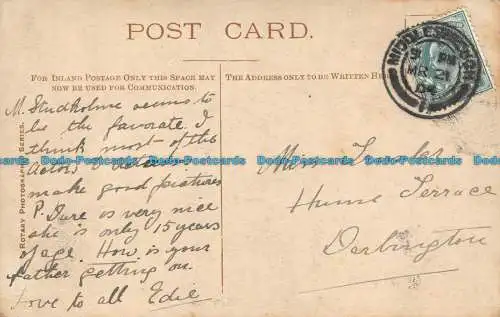 POST CARD.
FOR INLAND POSTAGE ONLY THIS SPACE MAY
NOW BE USED FOR COMMUNICATION.
THE ADDRESS ONLY TO BE WRITTEN HERE
MIDDLESBROUGH
MR 21
04
ROTARY PHOTOGRAPHIC SERIES.
M. Studholme seems to
be the favorite. I
think most of the
Actors &
make good pictures
P. Dare is very nice
she is only 15 years
of age. How is your
father getting on.
Love to all Edie
Hume Terrace
Dodo-Postcards Dodo-Postcards Dodo-Postcards Dodo-Postcards Dodo-Postcards